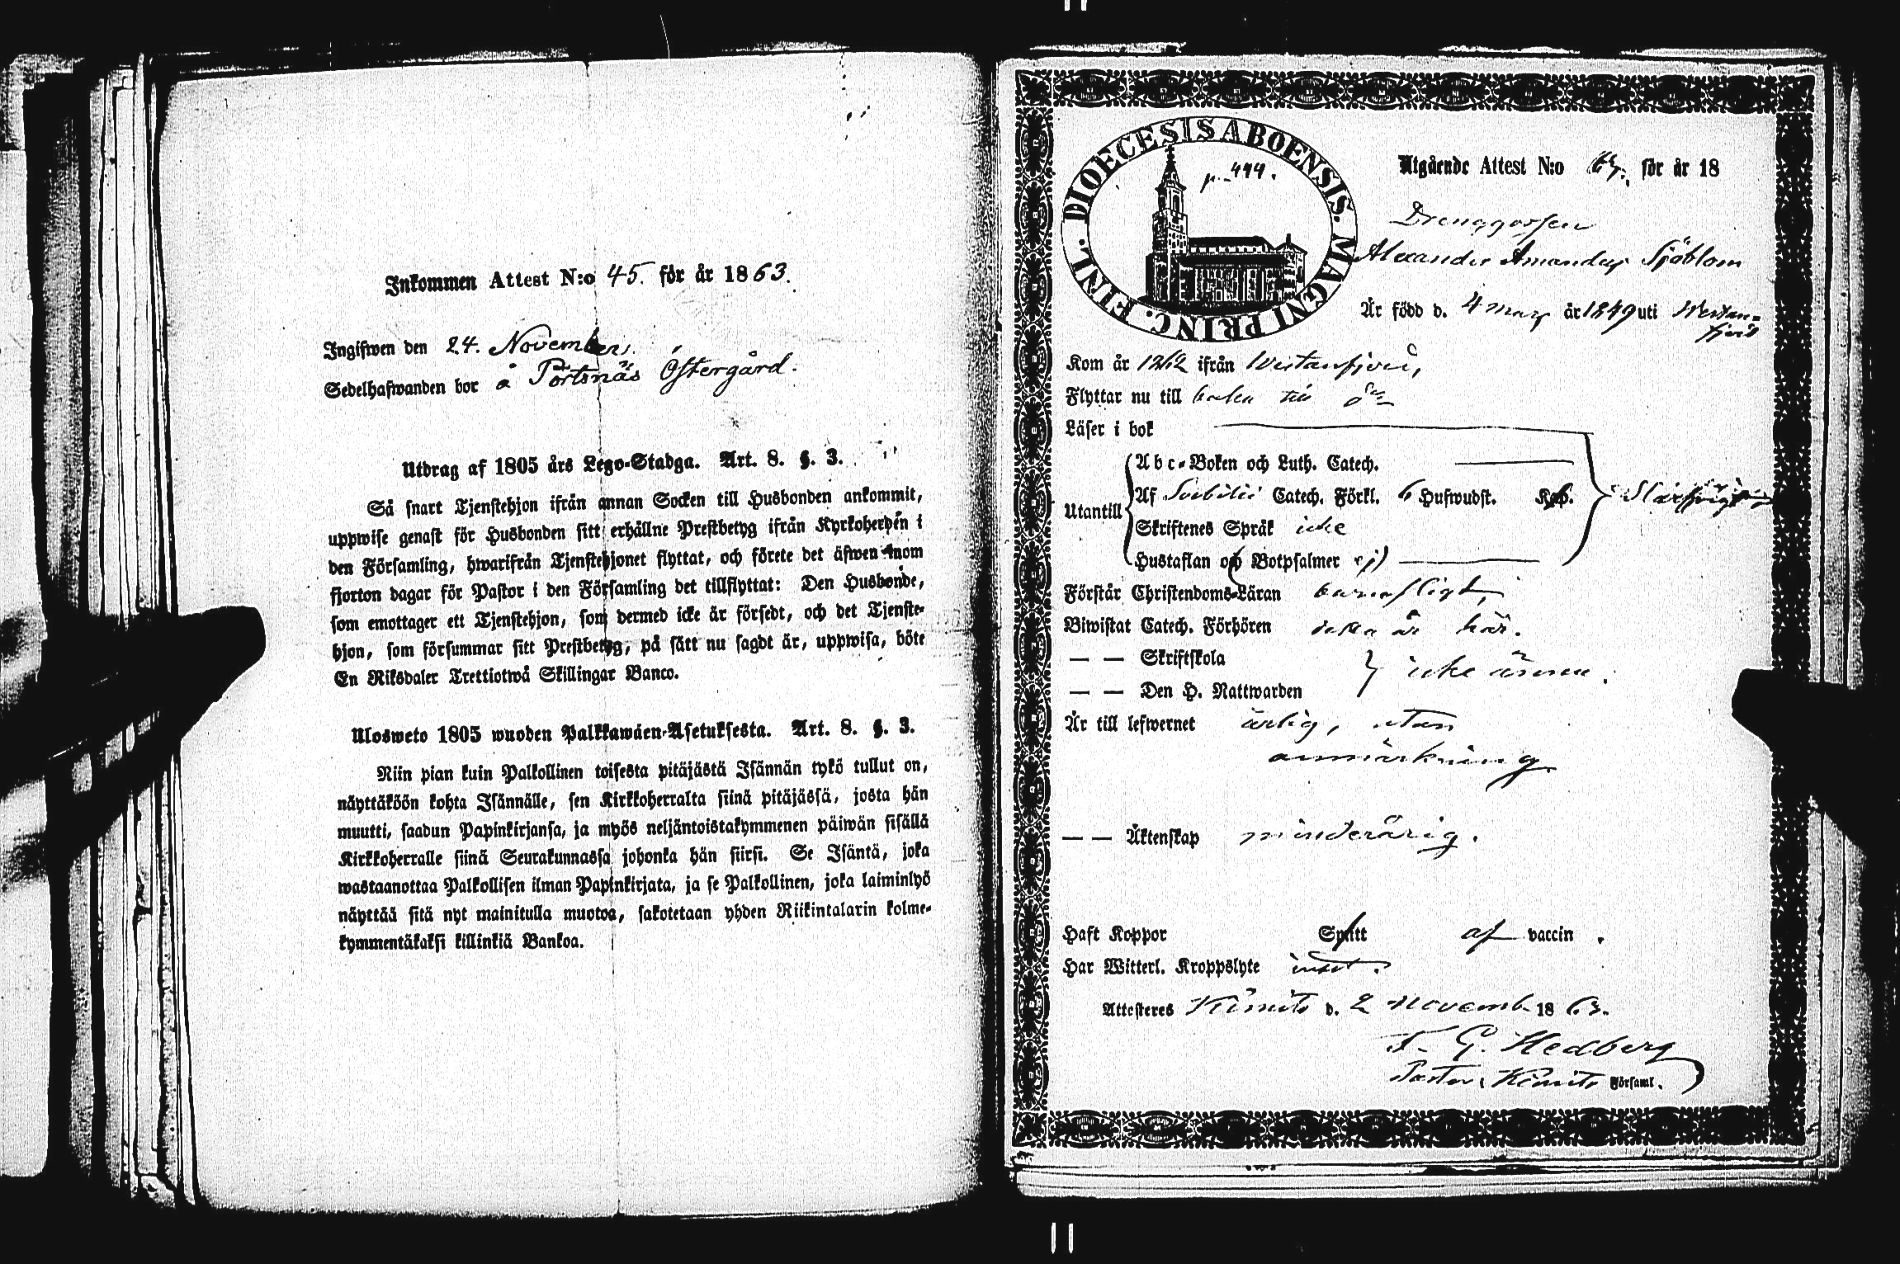 Inkommen Attest N:o 45. för år 1863.
Ingifwen den 24. November.
Sedelhafwanden bor å Pörtsnäs Östergård.
Utdrag af 1805 års Lego-Stadga. Art. 8. §. 3.
Så snart Tjenstehjon ifrån annan Socken till Husbonden ankommit,
uppwise genast för Husbonden sitt erhållne Prestbetyg ifrån Kyrkoherden i
den Församling, hwarifrån Tjenstehjonet flyttat, och förete det äfwen inom
fjorton dagar för Pastor i den Församling det tillflyttat: Den Husbonde,
som emottager ett Tjenstehjon, som dermed icke är försedt, och det Tjenste-
hjon, som försummar sitt Prestbetyg, på sätt nu sagdt är, uppwisa, böte
En Riksdaler Trettiotwå Skillingar Banco.
Ulosweto 1805 wuoden Palkkawäen-Asetuksesta. Art. 8. §. 3.
Niin pian kuin Palkollinen toisesta pitäjästä Isännän tykö tullut on,
näyttäköön kohta Isännälle, sen Kirkkoherralta siinä pitäjässä, josta hän
muutti, saadun Papinkirjansa, ja myös neljäntoistakymmenen päiwän sisällä
Kirkkoherralle siinä Seurakunnassa johonka hän siirsi. Se Isäntä, joka
wastaanottaa Palkollisen ilman Papinkirjata, ja se Palkollinen, joka laiminlyö
näyttää sitä nyt mainitulla muotoa, sakotetaan yhden Riikintalarin kolme-
kymmentäkaksi killinkiä Bankoa.
DIOECESIS ABOENSIS. MAGNI PRINC. FINL.
p. 444.
Utgående Attest N:o för år 18
Drenggossen
Alexander Amandus Sjöblom
Är född d. 4 mars år 1849 uti Westan-
fjerd
Kom år 1862 ifrån Westanfjerd,
Flyttar nu till baka till
Läser i bok
Abc-Boken och Luth. Catech.
Utantill
Af Svebilii Catech. Förkl. 6 Hufwudst. Kap.
Skriftenes Språk icke
Hustaflan och Botpsalmer ej
Förstår Christendoms-Läran barnsligt,
Biwistat Catech. Förhören är här.
— — Skriftskola
— — Den H. Nattwarden
icke ännu.
Är till lefwernet ärlig, utan
anmärkning
— — Äktenskap minderårig.
Haft Koppor Smitt af vaccin.
Har Witterl. Kroppslyte intet.
Attesteres Kimito d. 2 Novemb. 1863.
F. G. Hedberg
Pastor i Kimito Församl.